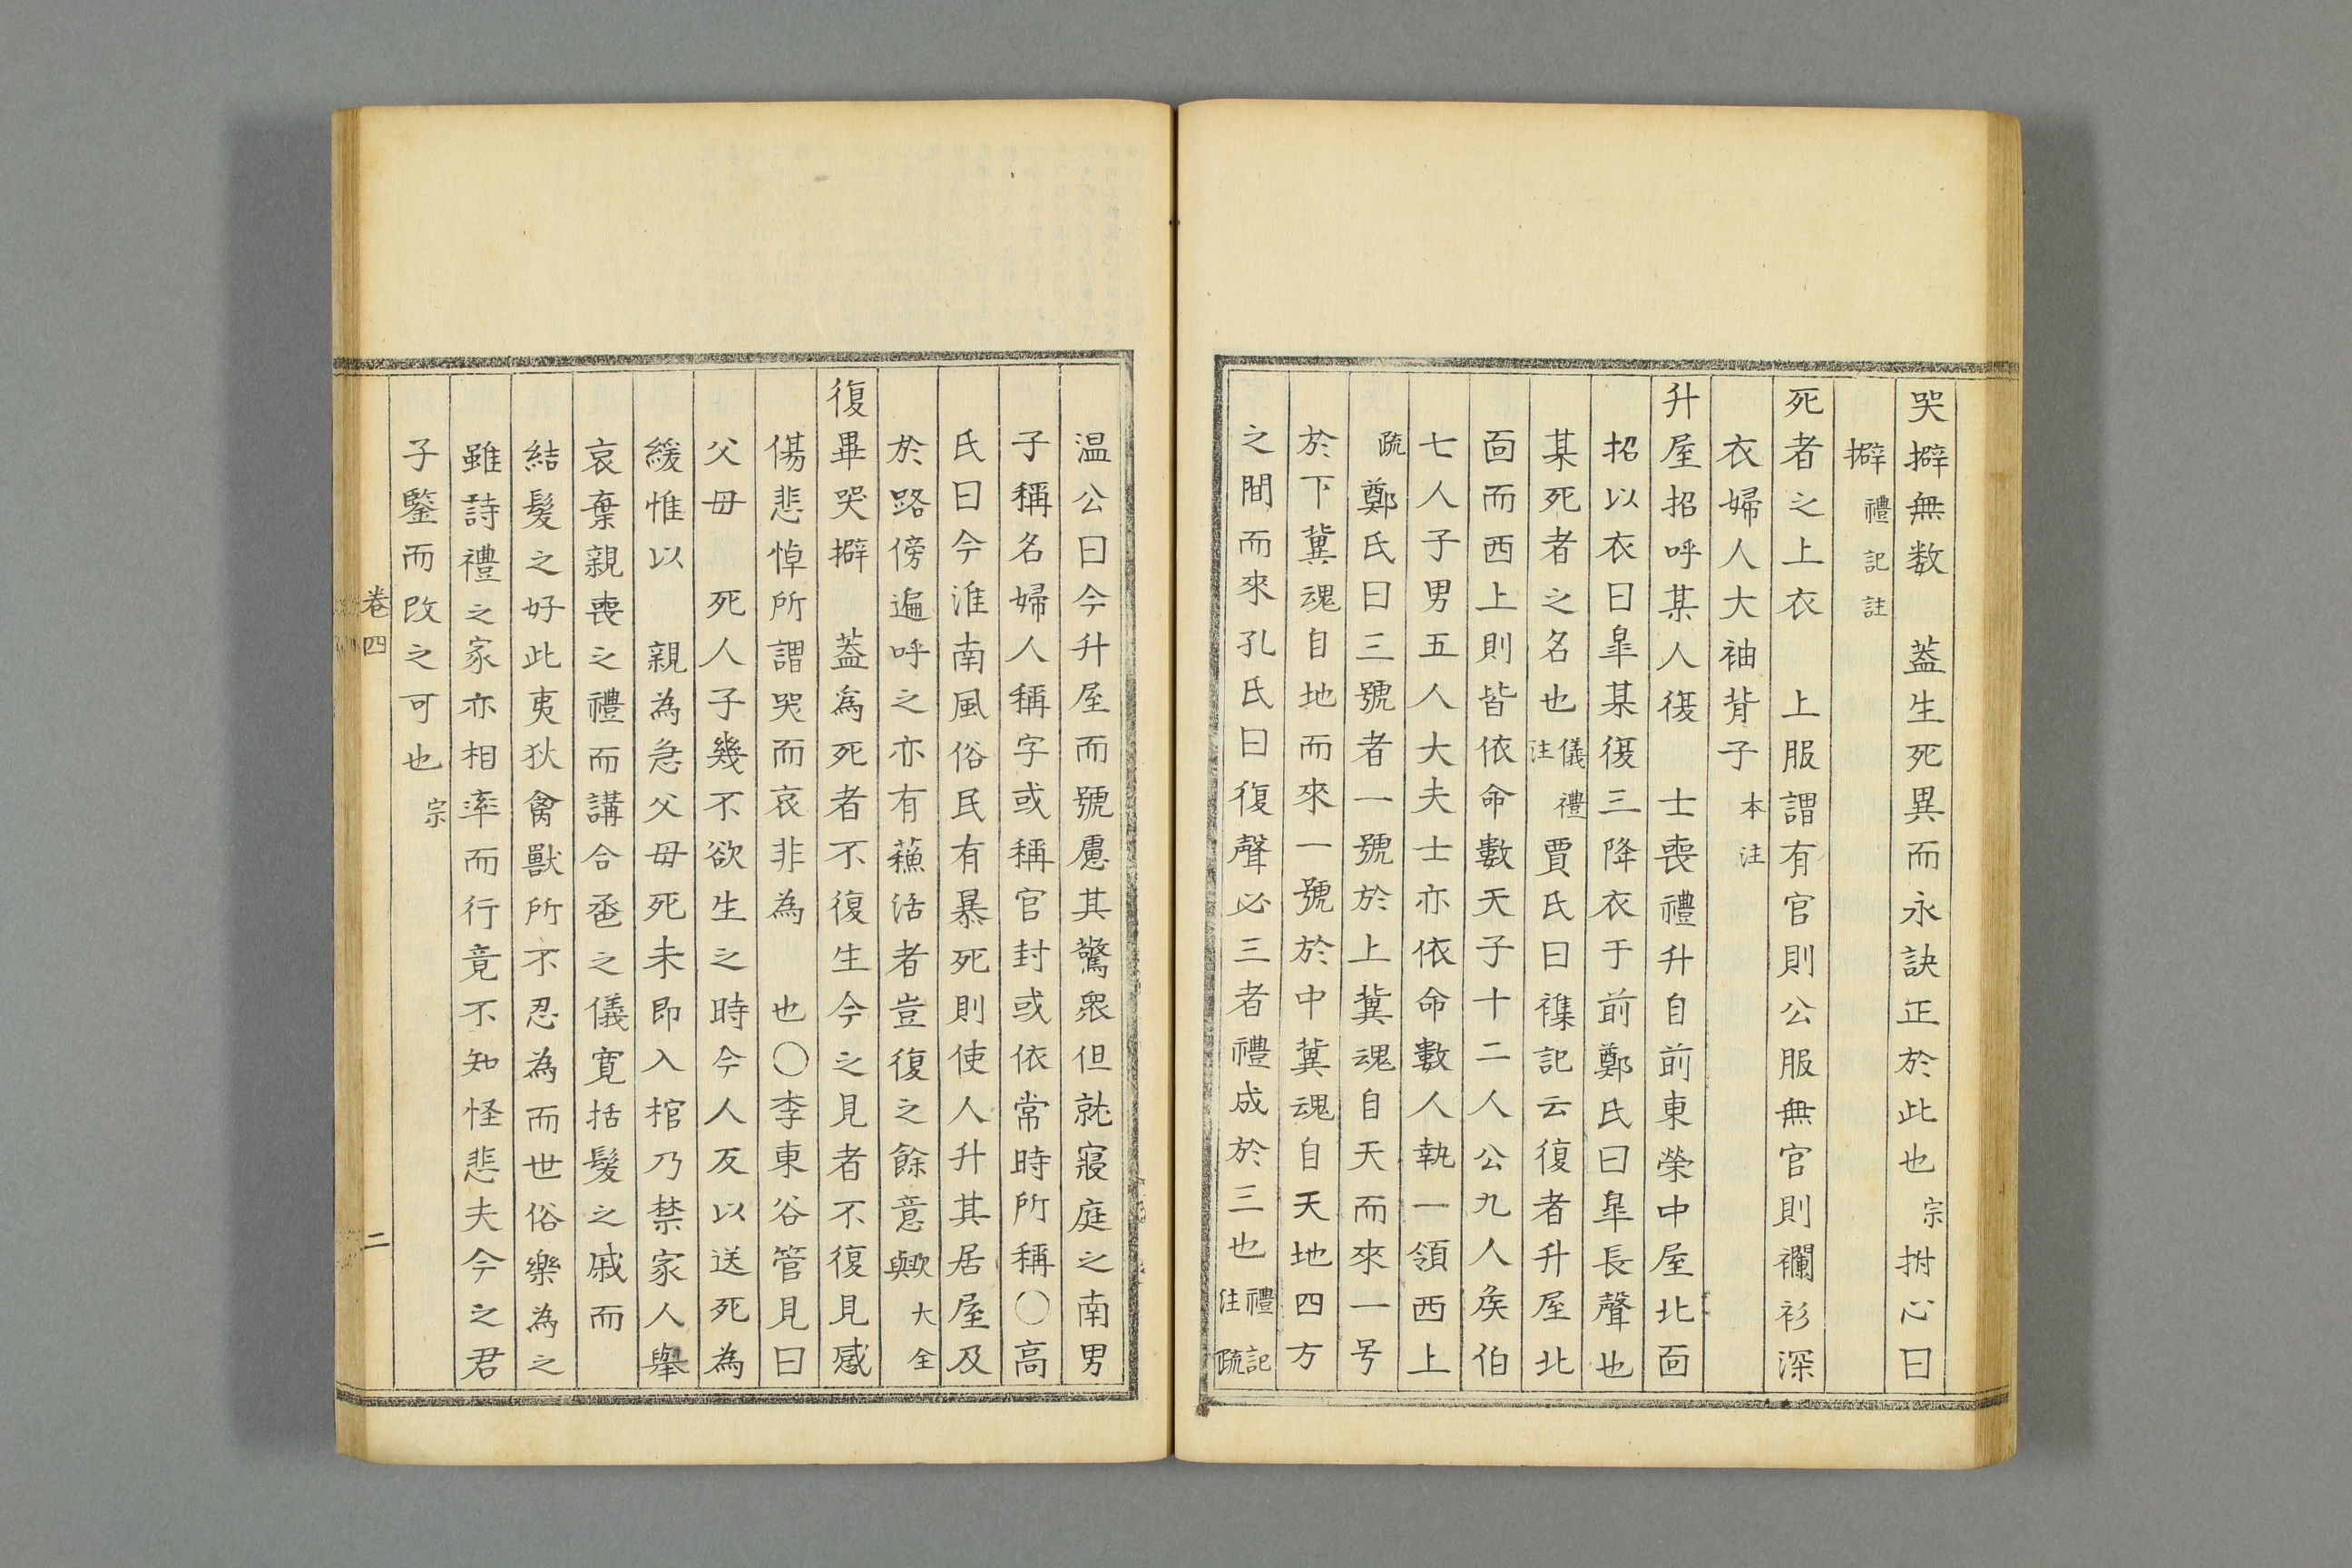 哭擗無数　蓋生死異而永訣正於此也宗拊心曰
擗禮記註
死者之上衣　上服謂有官則公服無官則襴衫深
衣婦人大袖背子本注
升屋招呼某人復　士喪禮升自前東榮中屋北靣
招以衣曰皐某復三降衣于前鄭氏曰皐長聲也
某死者之名也儀禮注賈氏曰襍記云復者升屋北
靣而西上則皆依命數天子十二人公九人矦伯
七人子男五人大夫士亦依命數人執一領西上
疏鄭氏曰三號者一號於上兾魂自天而來一号
於下兾魂自地而來一號於中兾魂自天地四方
之間而來孔氏曰復聲必三者禮成於三也禮記注疏
温公曰今升屋而號慮其驚衆但就寢庭之南男
子稱名婦人稱字或稱官封或依常時所稱〇高
氏曰今淮南風俗民有暴死則使人升其居屋及
於路傍遍呼之亦有蘓活者豈復之餘意歟大全
復畢哭擗　蓋爲死者不復生今之見者不復見感
傷悲悼所謂哭而哀非為　也〇李東谷管見曰
父母　死人子幾不欲生之時今人反以送死為
緩惟以　親為急父母死未即入棺乃禁家人舉
哀棄親喪之禮而講合巹之儀寛括髮之戚而
結髮之好此夷狄禽獸所不忍為而世俗樂為之
雖詩禮之家亦相率而行竟不知怪悲夫今之君
子鑒而改之可也宗
卷四
二